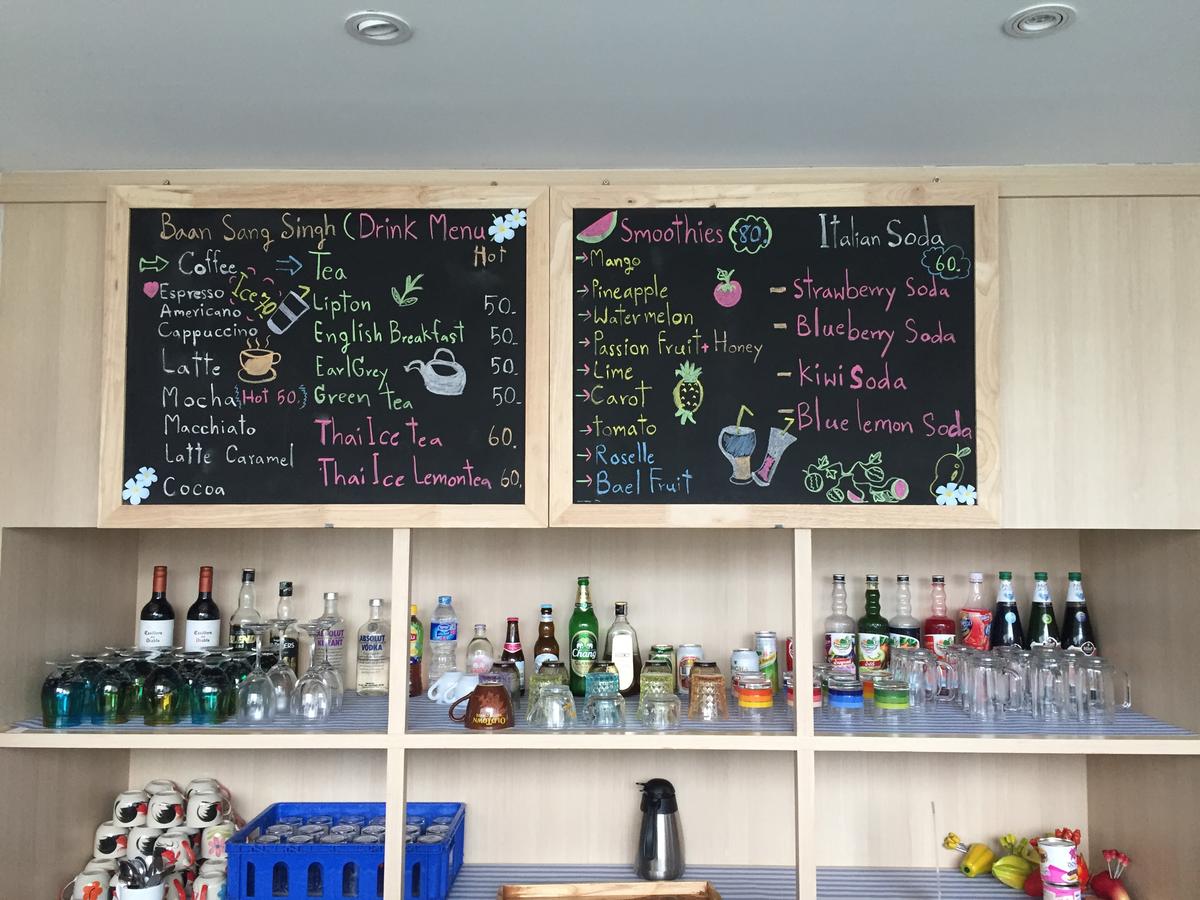 Baan Sang Singh (Drink Menu
Hot
Coffee
Ice 70
Espresso
Americano
Cappuccino
Latte
Mocha Hot 50.
Macchiato
Latte Caramel
Cocoa
Tea
Lipton 50.
English Breakfast 50.
Earl Grey 50.
Green Tea 50.
Thai Ice tea 60.
Thai Ice Lemontea 60.
Smoothies 80.
Mango
Pineapple
Watermelon
Passion Fruit + Honey
Lime
Carot
tomato
Roselle
Bael Fruit
Italian Soda
60.
Strawberry Soda
Blueberry Soda
Kiwi Soda
Blue lemon Soda
ABSOLUT
VODKA
Chang
OLDTOWN